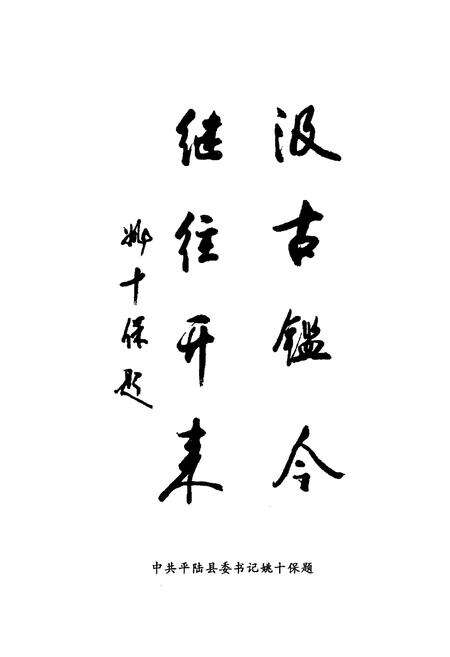 汲古鑑今
继往开来
姚十保题
中共平陆县委书记姚十保题